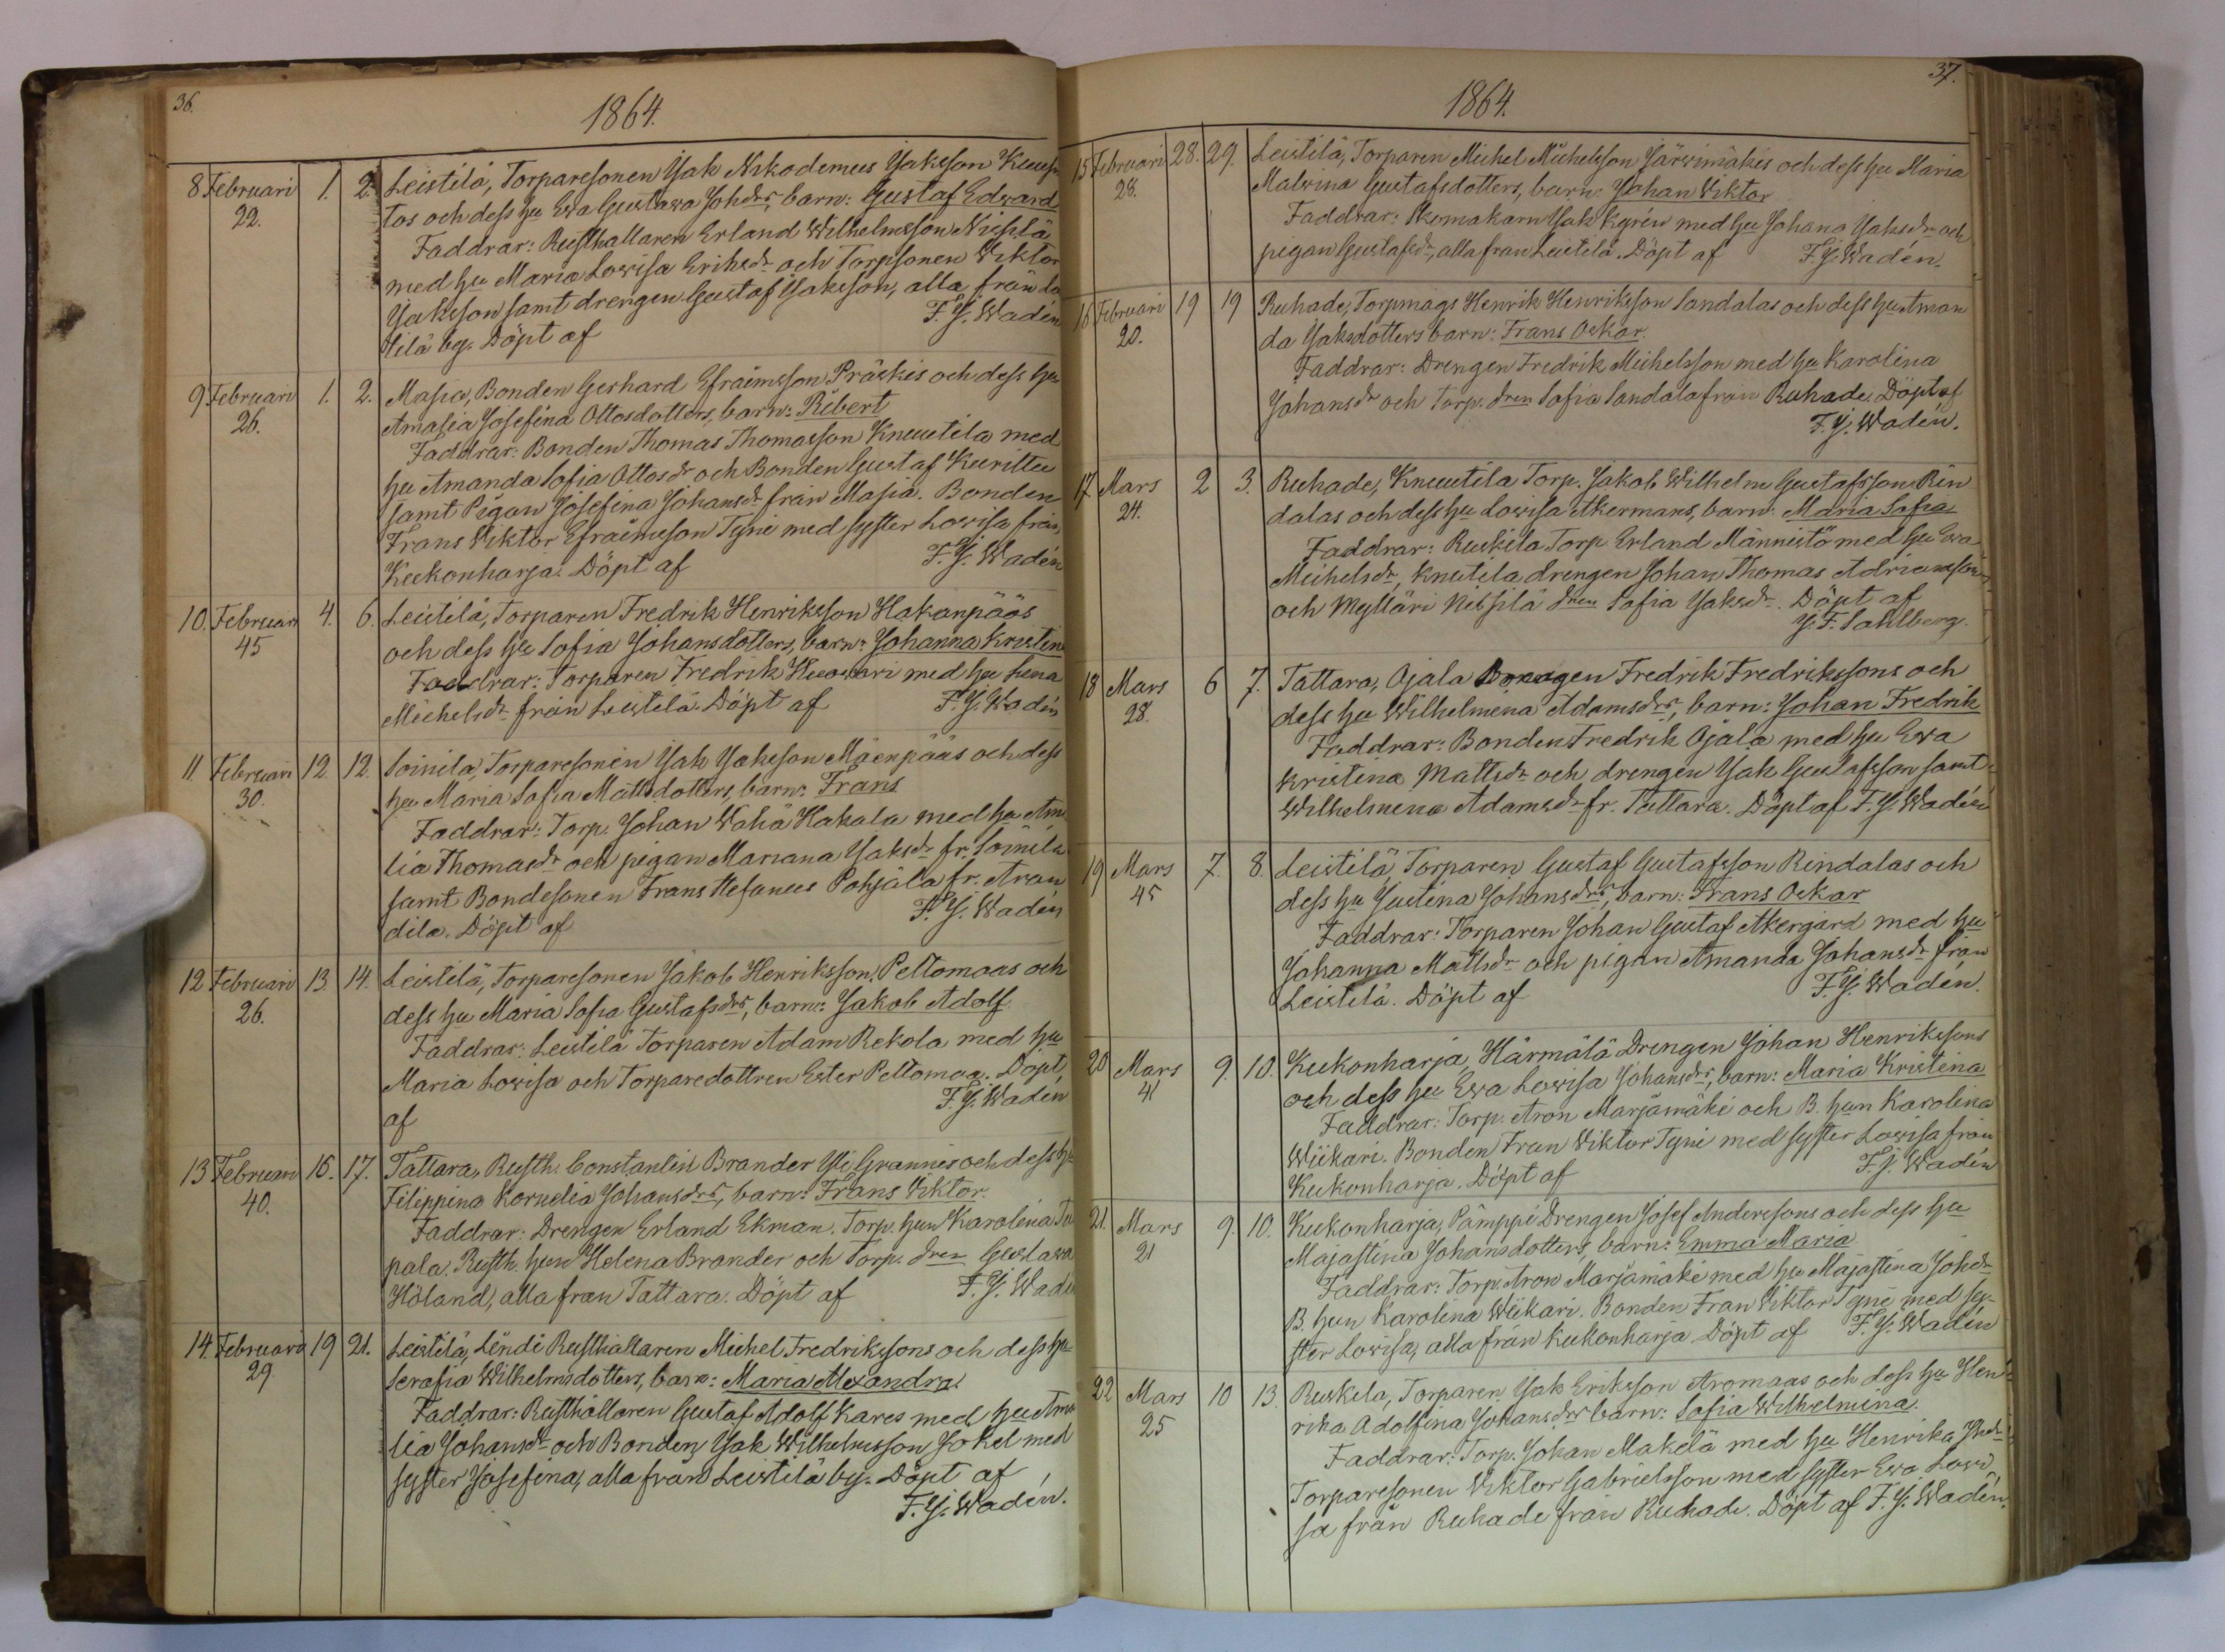 36.
1864.
8 Februari 1. 2. Leistilä, Torparesonen Isak Nikodemus Isaksson
22. tos och dess hu Ewa Gustawa Johdrs, barn: Gustaf Edward
Faddrar: Rusthållaren Erland Wilhelmsson Nissilä
med hu Maria Lowisa Eriksdr och Torpsonen Viktor
Isaksson samt drengen Gustaf Isaksson, alla från
tilä by. Döpt af F. J. Wadén
9 Februari 1. 2. Masia, Bonden Gerhard Efraimsson Präskis och dess hu
26. Amalia Josefina Ottosdotters, barn: Ribert
Faddrar: Bonden Thomas Thomasson Knuutila med
hu Amanda Sofia Ottosdr och Bonden Gustaf Kurittu
samt Pigan Josefina Johansdr från Masia. Bonden
Frans Viktor Efraimsson Tyni med syster Lowisa från
Kukonharja. Döpt af F. J. Wadén
10. Februari 4. 6. Leistilä, Torparen Fredrik Henriksson Hakanpääs
45 och dess hu Sofia Johansdotters, barn: Johanna Kristin
Faddrar: Torparen Fredrik med hu
Michelsdr från Leistilä. Döpt af F. J. Wadén
11. Februari 12. 12. Soinila, Torparesonen Isak Isaksson Mäenpääs och dess
30. hu Maria Sofia Mattsdotters, barn: Frans
Faddrar: Torp. Johan Wähä Hakala med hu Am
lia Thomasdr och pigan Mariana Isaksdr fr. Soinila
samt Bondesonen Frans Stefanus Pohjala fr. Aran
dila. Döpt af F. J. Wadén
12 Februari 13. 14. Leistilä, Torparesonen Jakob Henriksson Peltomaas och
26. dess hu Maria Sofia Gustafsdrs, barn: Jakob Adolf
Faddrar: Leistilä Torparen Adam Rekola med hu
Maria Lowisa och Torparedottren Ester Peltomaa. Döpt
af F. J. Wadén
13 Februari 16. 17. Tattara, Rusth. Constantin Brander Yli Grannis och dess hu
40. Filippina Kornelia Johansdrs, barn: Frans Viktor.
Faddrar: Drengen Erland Ekman. Torp. hun Karolina
pala. Rusth. hun Helena Brander och Torp. dren Gustawa
Höland, alla från Tattara. Döpt af F. J. Wadé
14. Februari 19 21. Leistilä, Lendi Rusthållaren Michel Fredrikssons och dess hu
29. Serafia Wilhelmsdotters, barn: Maria Alexandra.
Faddrar: Rusthållaren Gustaf Adolf Kares med hu Ama
lia Johansdr och Bonden Isak Wilhelmsson Jokel med
syster Josefina, alla från Leistilä by. Döpt af
F. J. Wadén.
37.
1864.
15 Februari 28. 29. Leistilä, Torparen Michel Michelsson Järwimäkis och dess hu Maria
28. Malwina Gustafsdotters, barn: Johan Viktor
Faddrar: Skomakarn Isak Kyrén med hu Johana Isaksdr och
pigan Gustafsdr, alla från Leistilä. Döpt af F. J. Wadén.
16 Februari 19 19 Ruhade, Torpmågs Henrik Henriksson Sandalas och dess hu Aman
20. da Isaksdotters barn: Frans Oskar.
Faddrar: Drengen Fredrik Michelsson med hu Karolina
Johansdr och Torp. dren Sofia Sandala från Ruhade. Döpt af
F. J. Wadén.
17 Mars 2 3. Ruhade, Knuutila Torp. Jakob Wilhelm Gustafsson Rin
24. dalas och dess hu Lowisa Akermans, barn: Maria Sofia
Faddrar: Ruskila Torp. Erland Männistö med hu Ewa
Michelsdr, Knutila drengen Johan Thomas Adriansson
och Mylläri Nissilä dren Sofia Isaksdr. Döpt af
J. F. Sahlberg.
18 Mars 6 7. Tattara, Ojala Drengen Fredrik Fredrikssons och
28. dess hu Wilhelmina Adamsdrs, barn: Johan Fredrik
Faddrar: Bonden Fredrik Ojala med hu Ewa
Kristina Mattsdr och drengen Isak Gustafsson samt
Wilhelmina Adamsdr fr. Tattara. Döpt af F. J. Wadén
19 Mars 7. 8. Leistilä, Torparen Gustaf Gustafsson Rindalas och
45 dess hu Justina Johansdrs, barn: Frans Oskar
Faddrar: Torparen Johan Gustaf Akergård med hu
Johanna Mattsdr och pigan Amanda Johansdr från
Leistilä. Döpt af F. J. Wadén.
20 Mars 9. 10. Kukonharja, Härmälä Drengen Johan Henrikssons
41 och dess hu Ewa Lowisa Johansdrs, barn: Maria Kristina
Faddrar: Torp. Aron Marjamäki och B. hun Karolina
Wiikari. Bonden Fran Viktor Tyni med syster Lowisa från
Kukonharja. Döpt af F. J. Wadén
21. Mars 9. 10. Kukonharja, Pämppi Drengen Josef Anderssons och dess hu
21 Majastina Johansdotters, barn: Emma Maria
Faddrar: Torp. Aron Marjamäki med hu Majastina Johdr
B. hun Karolina Wiikari. Bonden Fran Viktor Tyni med sy-
ster Lowisa, alla från Kukonharja Döpt af F. J. Wadén
22 Mars 10 13. Ruskila, Torparen Isak Eriksson Aromaas och dess hu Hen
25 rika Adolfina Johansdrs barn: Sofia Wilhelmina.
Faddrar: Torp. Johan Makelä med hu Henrika
Torparesonen Viktor Gabrielsson med syster Ewa Lowi
sa från Ruhade från Ruhade. Döpt af F. J. Wadén.